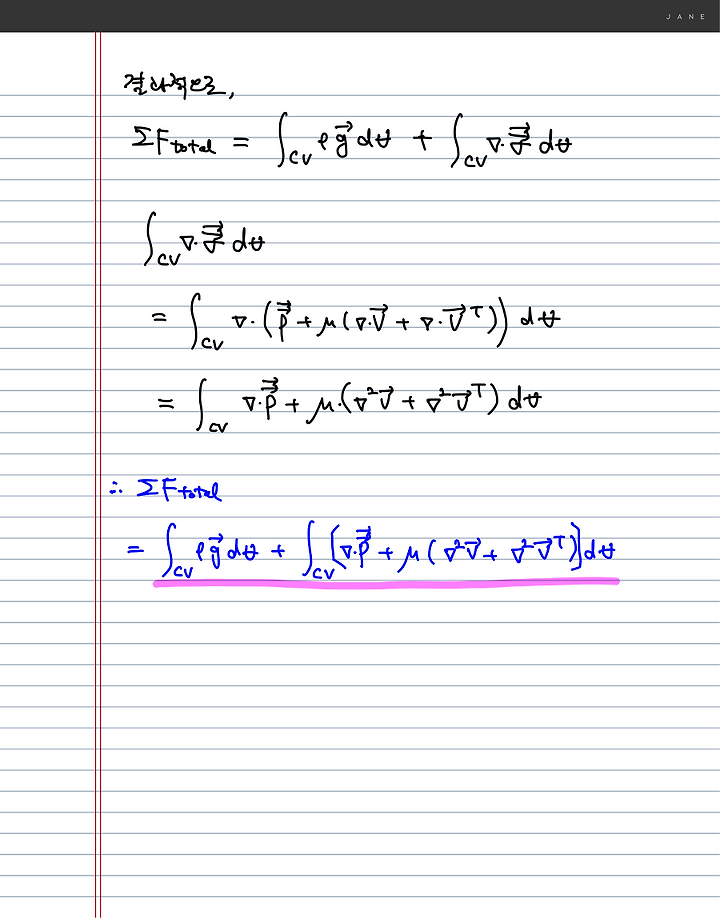 JANE
결과적으로,
ΣF_total = ∫_CV ρg⃗ dV̶ + ∫_CV ∇·σ⃗⃗ dV̶
∫_CV ∇·σ⃗⃗ dV̶
= ∫_CV ∇·(P⃗⃗ + μ(∇·V⃗ + ∇·V⃗ᵀ)) dV̶
= ∫_CV ∇·P⃗⃗ + μ·(∇²V⃗ + ∇²V⃗ᵀ) dV̶
∴ ΣF_total
= ∫_CV ρg⃗ dV̶ + ∫_CV [∇·P⃗⃗ + μ(∇²V⃗ + ∇²V⃗ᵀ)] dV̶